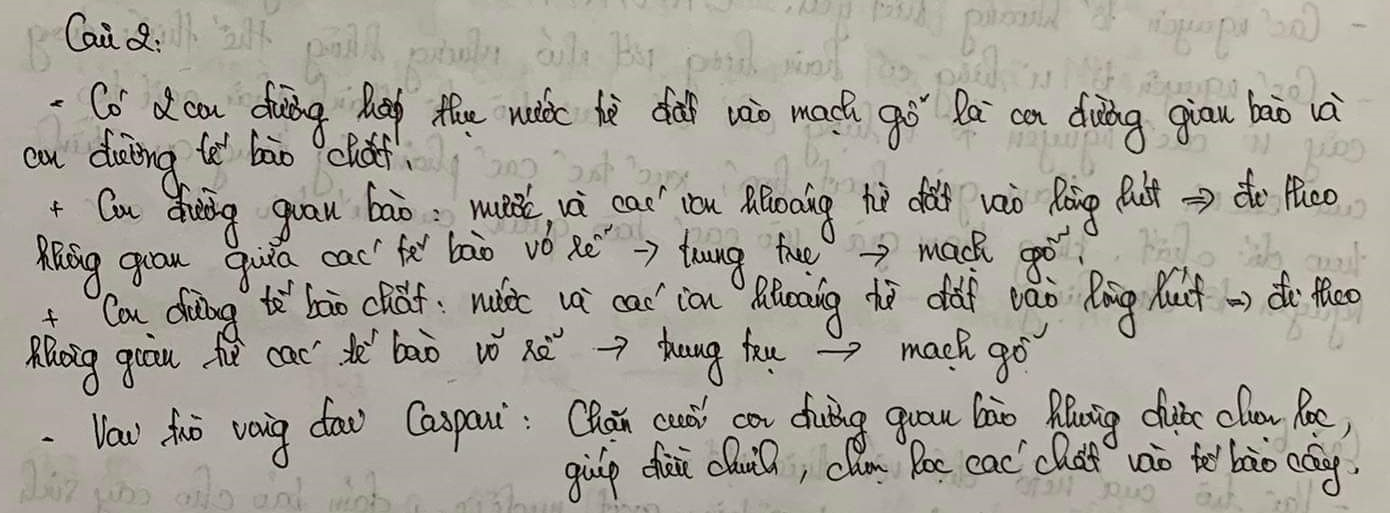 Câu 2:
- Có 2 con đường hấp thụ nước từ đất vào mạch gỗ là con đường gian bào và
con đường tế bào chất.
+ Con đường gian bào: nước và các ion khoáng từ đất vào lông hút => đi theo
không gian giữa các tế bào vỏ rễ -> trung trụ -> mạch gỗ.
+ Con đường tế bào chất: nước và các ion khoáng từ đất vào lông hút => đi theo
không gian từ các tế bào vỏ rễ -> trung trụ -> mạch gỗ
- Vai trò vòng đai Caspari: Chặn cuối con đường gian bào không được chọn lọc,
giúp điều chỉnh, chọn lọc các chất vào tế bào cây.